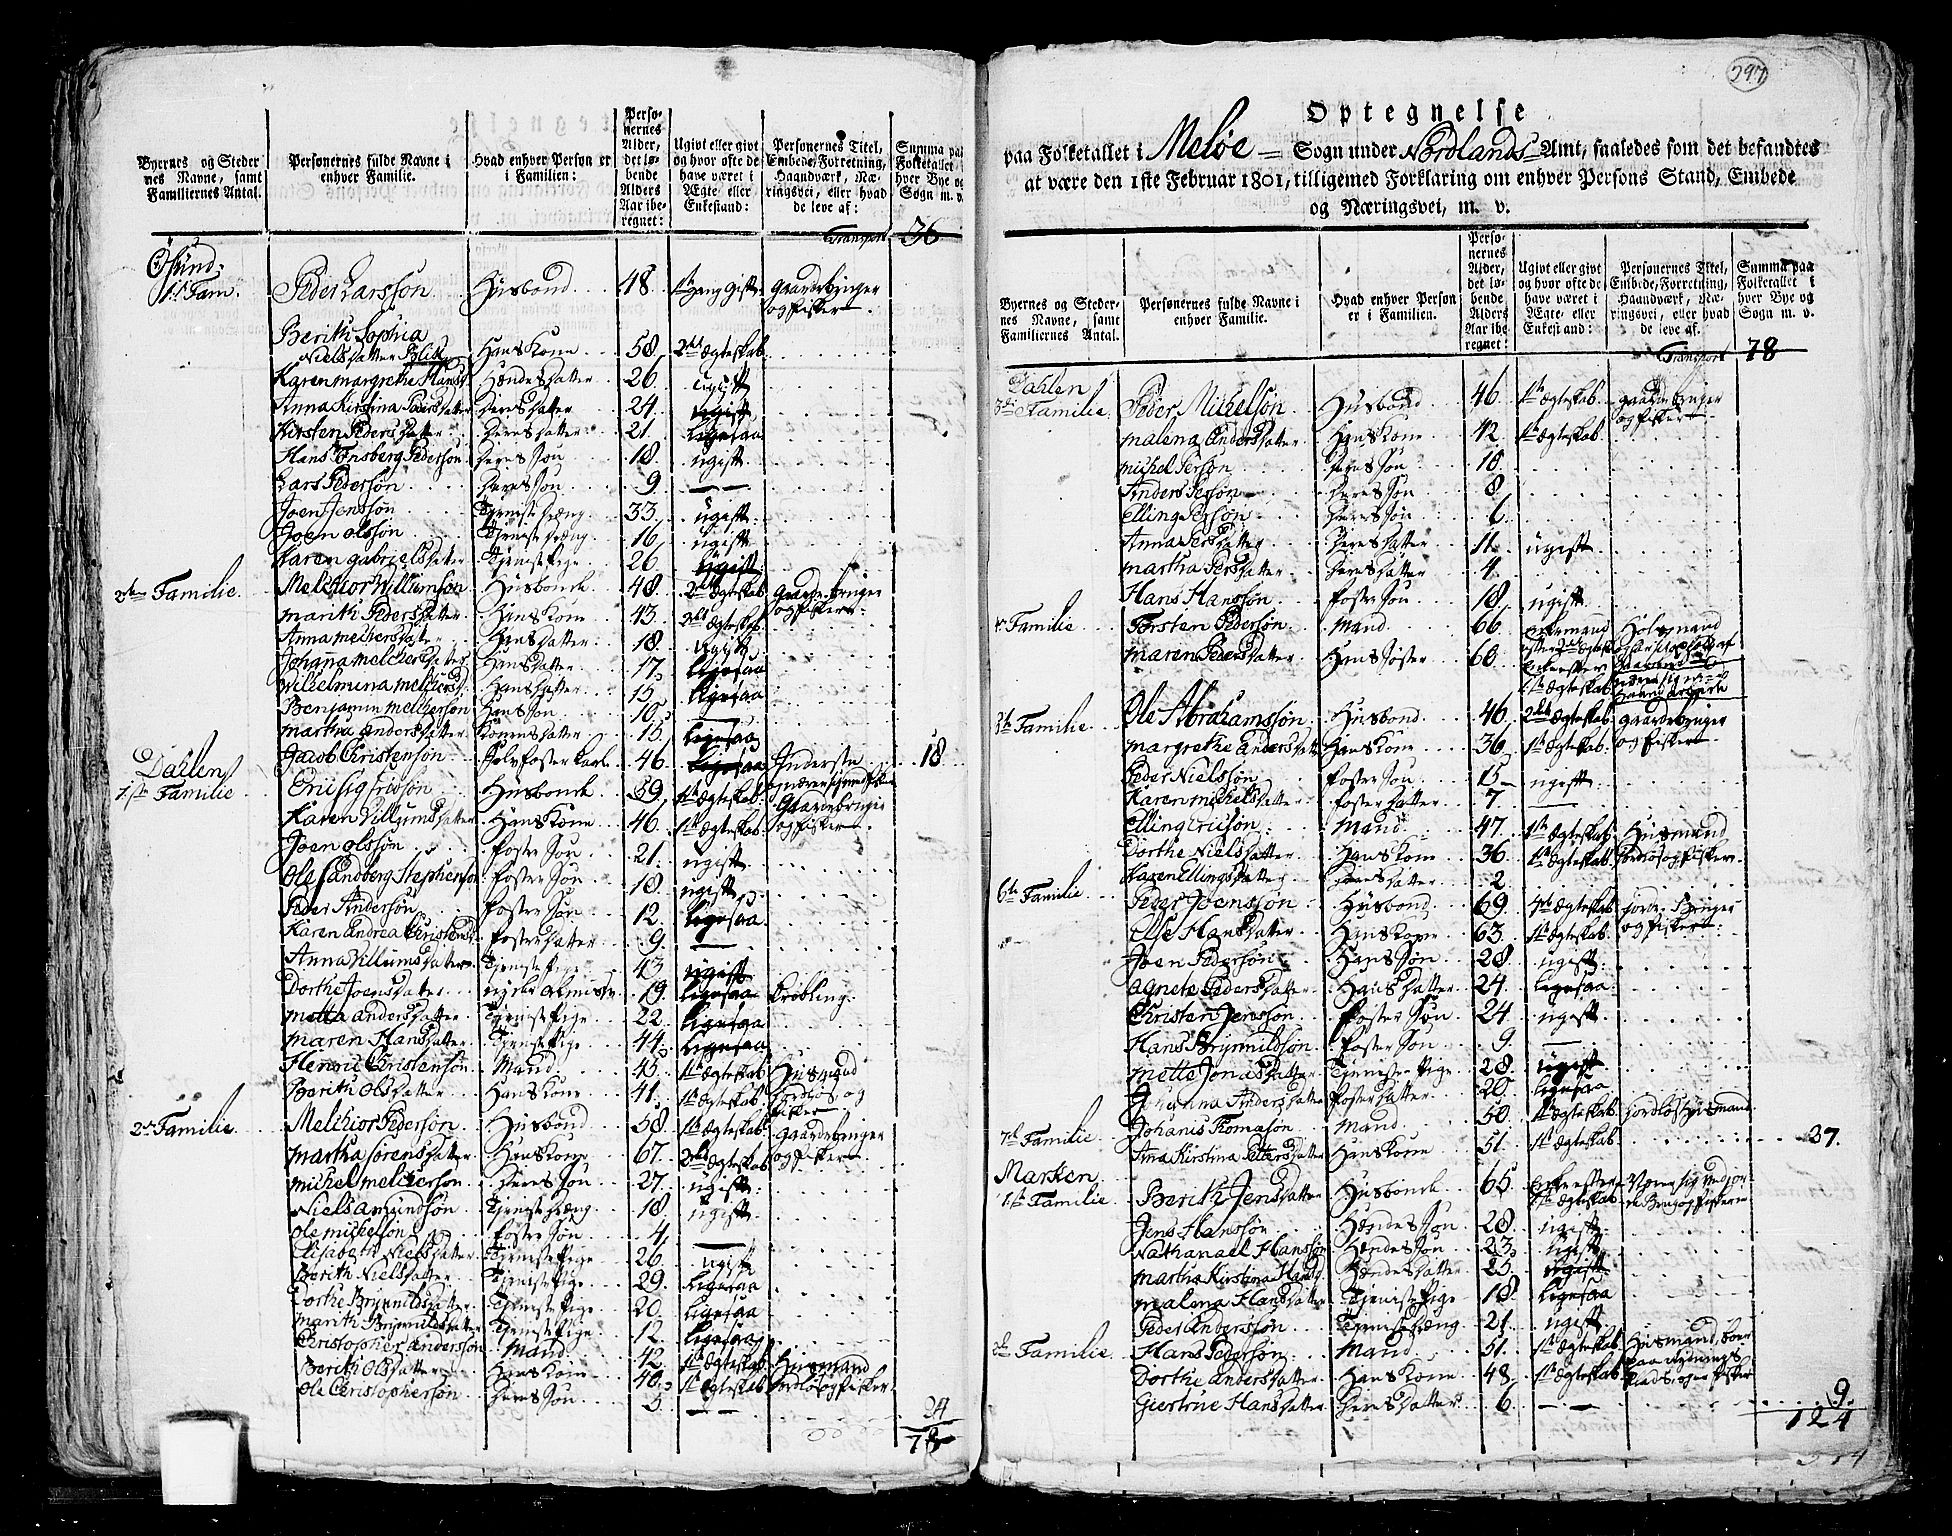 Byernes og Steder
nes Navne, samt
Familiernes Antal.
Personernes fulde Navne i
enhver Familie.
Hvad enhver Person er
i Familien:
Perso-
nernes
Alder,
det lø-
bende
Alders
Aar ibe-
regnet:
Ugivt eller givt
og hvor ofte de
have været i
Ægte eller
Enkestand:
Personernes Titel,
Embede, Forretning,
Haandværk, Næ-
ringsvei, eller hvad
de leve af:
Summa paa
Folketallet i
hver Bye og
Sogn m. v.
Transport 36
Øsund
1st Fam. Peder Larssøn Husbond 48 1st gang gift gaardbruger
og fisker
Berith Sophia
Nielsdatter Hans Kone 58 2det Ægteskab
Karen Margrethe Hansd. Hendes datter 26 ugift
Anna Kirstina Pedersdatter Deres datter 24 ugift
Kirsten Pedersdatter Deres datter 21 ligesaa
Hans Pedersøn Deres søn 18 ugift
Lars Pedersøn Deres søn 9 —
Joen Jenssøn Tjeneste dreng 33 ugift
Joen olssøn Tjeneste dreng 16 ugift
Karen gabrielsdatter Tjeneste Pige 26 ugift
2den Familie Melchior Willumsøn Husbonde 48 2det Ægteskab Gaardbruger
marith Pedersdatter Hans Kone 43 2det Ægteskab og fisker
Anna melchersdatter Hans datter 18 ugift
Johanna melchersdatter Hans datter 17 ligesaa
Wilhelmina melchersd. Hans datter 15 ligesaa
Benjamin melchersøn Hans søn 10 —
martha andersdatter Konens datter 15 ligesaa
Jacob Christensøn 46 ligesaa Inderste 18
Dahlen
1ste Familie Husbonde 59 1ste Ægteskab Gaardbruger
Karen Villumsdatter Hans Kone 46 1ste Ægteskab og fisker
Joen olssøn foster søn 21 ugift
Ole Sandberg Stephensøn foster søn 18 ugift
Peder Andersøn foster søn 12 ligesaa
Karen Andrea Christensd. foster datter 9 —
Anna Villumsdatter Tjeneste Pige 43 ugift
Dorthe Joensdatter nyder almisse 19 ligesaa Krøbling
metta andersdatter Tjeneste Pige 22 ligesaa
maren Hansdatter Tjeneste Pige 44 ligesaa
Henric Christensøn Mand 45 1ste Ægteskab Husmand
Berith Olsdatter Hans Kone 41 1ste Ægteskab Jordløs og
fisker
2den Familie Melchior Pedersøn Husbond 58 1ste Ægteskab Gaardbruger
martha sørensdatter Hans Kone 67 2det Ægteskab og fisker
michel melchersøn Deres søn 27 ugift
Niels amundsøn Tjeneste dreng 18 ugift
Ole michelsøn foster søn 4 —
Elisabeth Nielsdatter Tjeneste Pige 26 ugift
Berith Nielsdatter Tjeneste Pige 29 ligesaa
Dorthe Brynildsdatter Tjeneste Pige 20 ligesaa
Marith Brynildsdatter Tjeneste Pige 12 ligesaa
Christopher andersøn Mand 42 1ste Ægteskab Husmand
Berith Olsdatter Hans Kone 40 1ste Ægteskab Jordløs og fisker
Ole Christophersøn Deres søn 5 —
24
78
297
Optegnelse
paa Folketallet i Meløe Sogn under Nordlands Amt, saaledes som det befandtes
at være den 1ste Februar 1801, tilligemed Forklaring om enhver Persons Stand, Embede
og Næringsvei, m. v.
Byernes og Steder-
nes Navne, samt
Familiernes Antal.
Personernes fulde Navne i
enhver Familie.
Hvad enhver Person
er i Familien.
Perso-
nernes
Alder,
det lø-
bende
Alders
Aar ibe-
regnet:
Ugivt eller givt
og hvor ofte de
have været i
Ægte eller
Enkestand:
Personernes Titel,
Embede, Forretning,
Haandværk, Næ-
ringsvei, eller hvad
de leve af.
Summa paa
Folketallet i
hver Bye og
Sogn m. v.
Transport 78
Dahlen
3die Familie Peder Michelsøn Husbond 46 1ste Ægteskab gaardbruger
og fisker
malena Andersdatter Hans Kone 42 1ste Ægteskab
michel Persøn Deres søn 10
Anders Persøn Deres søn 8
Elling Persøn Deres søn 6
Anna Persdatter Deres datter 11 ugift
martha Persdatter Deres datter 4
Hans Hanssøn foster søn 18 ugift
4de Familie Torsten Pedersøn Mand 66 Enkemand
maren Pedersdatter Hans søster 60
5te Familie Ole Abrahamssøn Husbond 46 2det Ægteskab gaardbruger
margrethe andersdatter Hans Kone 36 1ste Ægteskab og fisker
Peder Nielssøn foster søn 15 ugift
Karen michelsdatter foster datter 7 —
Elling Ericsøn Mand 47 1ste Ægteskab Husmand
Dorthe Nielsdatter Hans Kone 36 1ste Ægteskab Jordløs og fisker
Karen Ellingsdatter Deres datter 2
6te Familie Peder Joenssøn Husbond 69 Ægteskab Jordbruger
Else Hansdatter Hans Kone 63 1ste Ægteskab og fisker
Joen Pedersøn Hans søn 28 ugift
Agnete Pedersdatter Hans datter 24 ligesaa
Christen Jenssøn foster søn 24 ugift
Hans Brynnildsøn foster søn 9 —
mette Jonasdatter Tjeneste Pige 28 ugift
Johanna Andersdatter foster datter 20 ligesaa
7de Familie Johanis Thomasøn Mand 50 1ste Ægteskab Jordløs Husmand
Anna Kirstina Pettersdatter Hans Kone 51 1ste Ægteskab 37
Marken
1ste Familie Berith Jensdatter Husbonde 65
Jens Hanssøn Hendes søn 28 ugift
Nathanael Hanssøn Hendes søn 23 ugift
martha Kirstina Hansd. Hendes datter 25 ugift
malena Hansdatter Tjeneste Pige 18 ligesaa
Peder Anderssøn Tjeneste dreng 21 ugift
2den Familie Hans Pedersøn Mand 51 1ste Ægteskab Husmand, boer
Dorthe andersdatter Hans Kone 48 1ste Ægteskab paa Rydnings
Giertrue Hansdatter Deres datter 6 — Plads, og er fisker
9
124